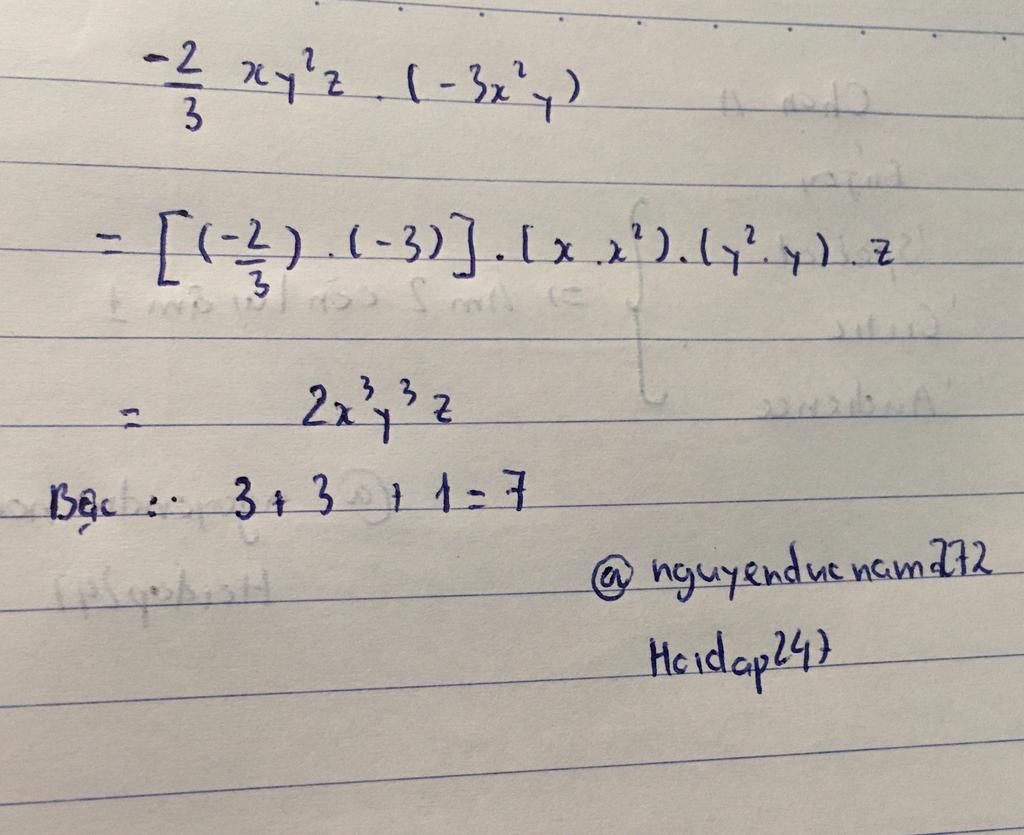 -2/3 xy²z . (-3x²y)
= [(-2/3) . (-3)] . (x . x²) . (y² . y) . z
= 2x³y³z
Bậc : 3 + 3 + 1 = 7
@ nguyenducnam272
Hoidap247